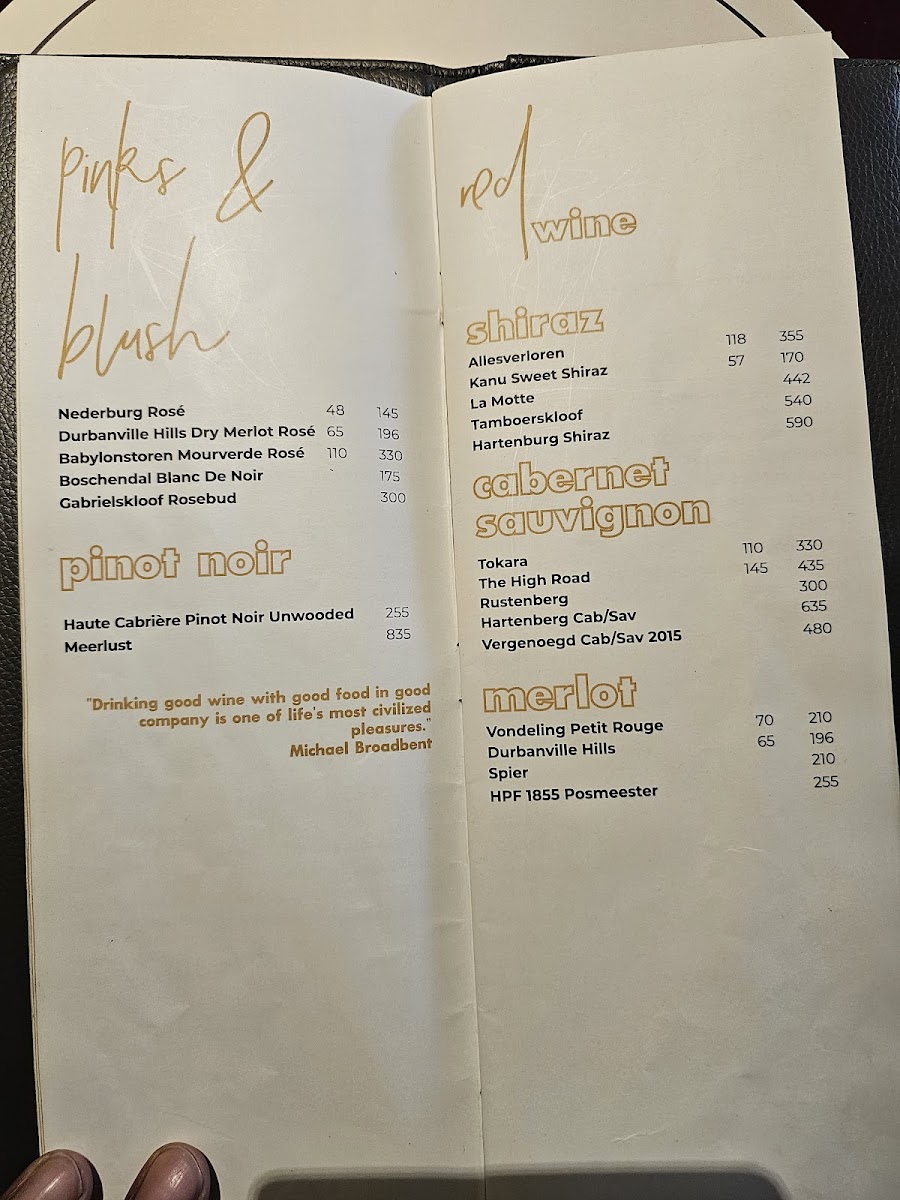 pinks &
blush
Nederburg Rosé 48 145
Durbanville Hills Dry Merlot Rosé 65 196
Babylonstoren Mourverde Rosé 110 330
Boschendal Blanc De Noir 175
Gabrielskloof Rosebud 300
pinot noir
Haute Cabrière Pinot Noir Unwooded 255
Meerlust 835
"Drinking good wine with good food in good
company is one of life's most civilized
pleasures."
Michael Broadbent
red
wine
shiraz
Allesverloren 118 355
Kanu Sweet Shiraz 57 170
La Motte 442
Tamboerskloof 540
Hartenburg Shiraz 590
cabernet
sauvignon
Tokara 110 330
The High Road 145 435
Rustenberg 300
Hartenberg Cab/Sav 635
Vergenoegd Cab/Sav 2015 480
merlot
Vondeling Petit Rouge 70 210
Durbanville Hills 65 196
Spier 210
HPF 1855 Posmeester 255